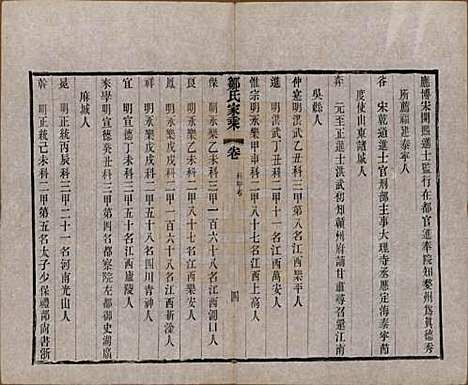 應博宋開熙進士監行在都官進奉院知婺州爲真德秀
所薦福建泰寧人
谷　宋乾道進士官刑部主事大理寺丞應定海泰寧蒞
度使山東諸城人
弈　元至正進士洪武初知贛州府謫甘肅尋召還江南
吳縣人
仲寔明洪武乙丑科三甲第八名江西樂平人
進　明洪武丁丑科二甲二十一名江西萬安人
惟宗明永樂甲申科二甲八十七名江西上高人
鄒氏家乘　卷　科甲考　四
傑　明永樂乙未科三甲一百六十八名江西湖口人
鳳　明永樂戊戌科三甲一百六十八名江西新淦人
良　明永樂戊戌科三甲一百五十八名四川青神人
宜　明宣德　科二甲五十八名江西廬陵人
來學明宣德癸丑科二甲第四名都察院左都御史湖廣
麻城人
冕　明正統丙辰科三甲二十一名河南光山人
幹　明正統己未科二甲第五名太子少保禮部尚書浙